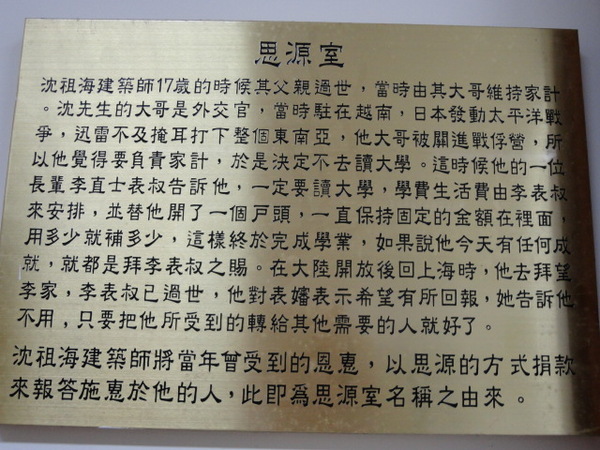 思源室
沈祖海建築師17歲的時候其父親過世，當時由其大哥維持家計
。沈先生的大哥是外交官，當時駐在越南，日本發動太平洋戰
爭，迅雷不及掩耳打下整個東南亞，他大哥被關進戰俘營，所
以他覺得要負責家計，於是決定不去讀大學。這時候他的一位
長輩李直士表叔告訴他，一定要讀大學，學費生活費由李表叔
來安排，並替他開了一個戶頭，一直保持固定的金額在裡面，
用多少就補多少，這樣終於完成學業，如果說他今天有任何成
就，就都是拜李表叔之賜。在大陸開放後回上海時，他去拜望
李家，李表叔已過世，他對表嬸表示希望有所回報，她告訴他
不用，只要把他所受到的轉給其他需要的人就好了。
沈祖海建築師將當年曾受到的恩惠，以思源的方式捐款
來報答施惠於他的人，此即為思源室名稱之由來。